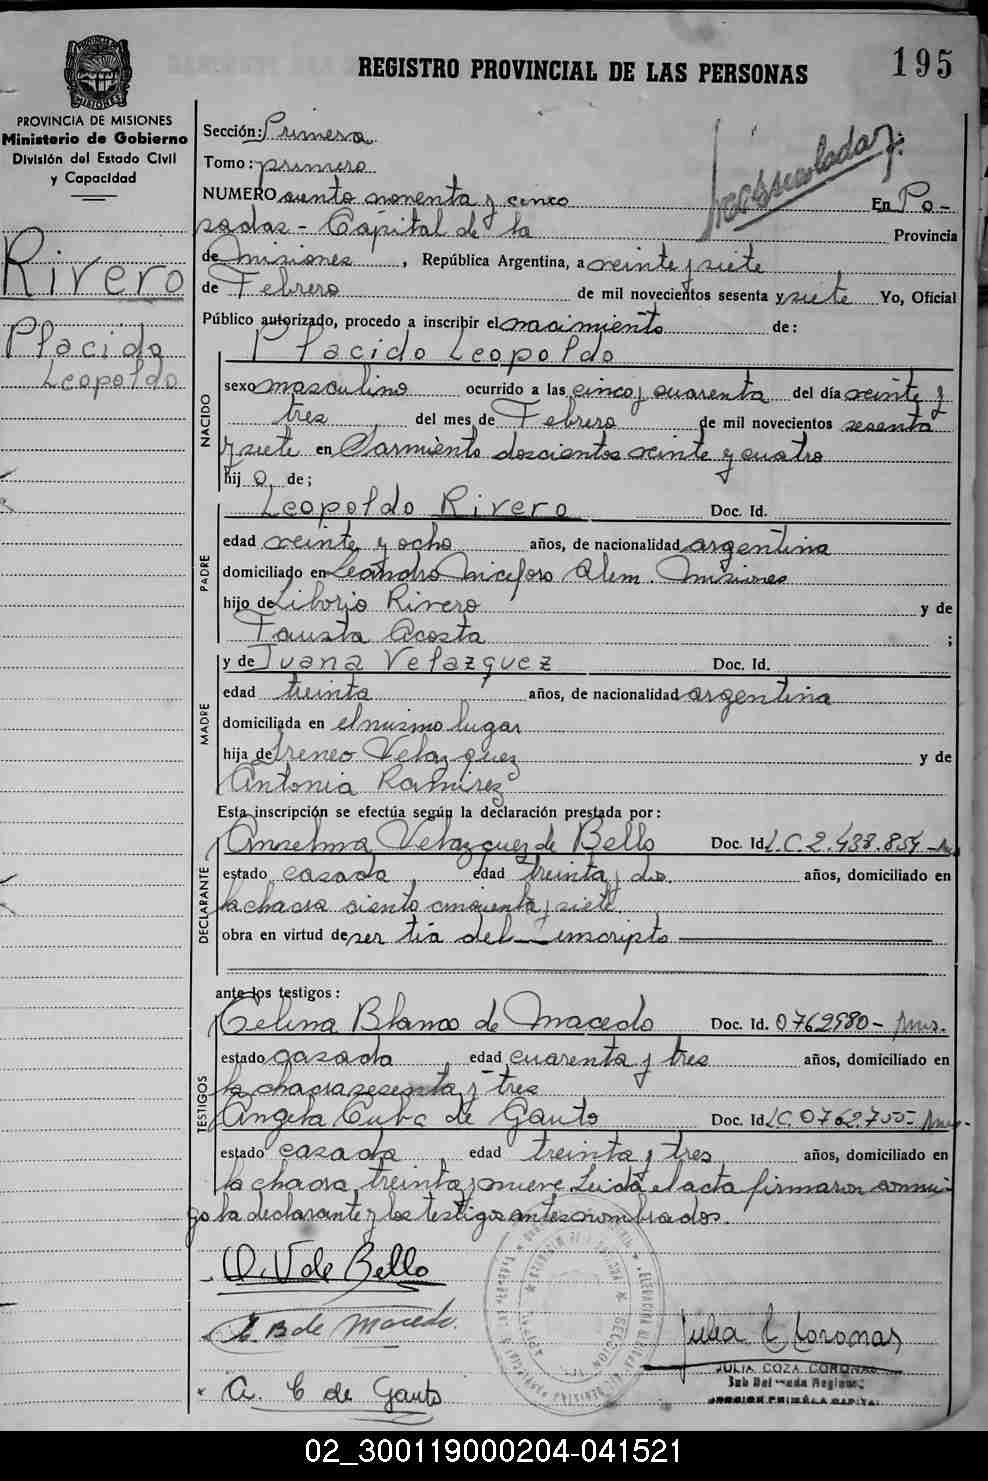 REGISTRO PROVINCIAL DE LAS PERSONAS
195
PROVINCIA DE MISIONES
Ministerio de Gobierno
División del Estado Civil
y Capacidad
Rivero
Placido
Leopoldo
Sección: Primera
Tomo: primero
NUMERO ciento noventa y cinco En Po-
sadas - Capital de la Provincia
de Misiones, República Argentina, a veinte y siete
de Febrero de mil novecientos sesenta y siete Yo, Oficial
Público autorizado, procedo a inscribir el nacimiento de:
Placido Leopoldo
NACIDO
sexo masculino ocurrido a las cinco y cuarenta del día veinte y
tres del mes de Febrero de mil novecientos sesenta
y siete en Sarmiento doscientos veinte y cuatro
hijo de;
Leopoldo Rivero Doc. Id.
PADRE
edad veinte y ocho años, de nacionalidad argentina
domiciliado en Leandro Niceforo Alem. Misiones
hijo de Liborio Rivero y de
Fausta Acosta ;
MADRE
y de Juana Velazquez Doc. Id.
edad treinta años, de nacionalidad argentina
domiciliada en el mismo lugar
hija de Ireneo Velazquez y de
Antonia Ramirez
Esta inscripción se efectúa según la declaración prestada por:
DECLARANTE
Anselma Velazquez de Bello Doc. Id. L.C. 2.438.854
estado casada, edad treinta y dos años, domiciliado en
la chacra ciento cincuenta y siete
obra en virtud de ser tía del inscripto
ante los testigos:
TESTIGOS
Celina Blanco de Macedo Doc. Id. 0762980 - Mns.
estado casada, edad cuarenta y tres años, domiciliado en
la chacra sesenta y tres
Angela Cuba de Gauto Doc. Id. LC. 0762.755 - Mns.
estado casada, edad treinta y tres años, domiciliado en
la chacra treinta y nueve. Leida el acta firmaron conmi-
go la declarante y los testigos antes nombrados.
A. V de Bello
C. B de Macedo.
A. C de Gauto
Julia C Coronas
JULIA COZA CORONAS
Sub Delegada Regional
SECCION PRIMERA CAPITAL
02_300119000204-041521